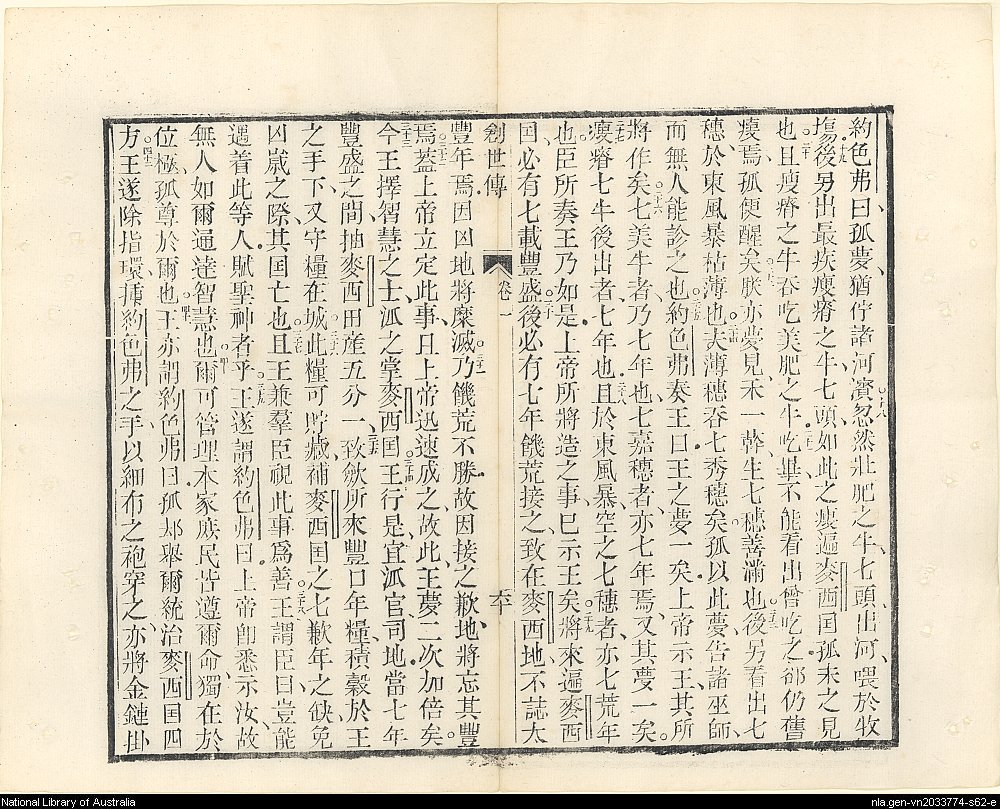 約色弗曰孤夢猶佇諸河濱忽然壯肥之牛七頭出河喂於牧
塲後另出最疾瘦瘠之牛七頭如此之瘦遍麥西囯孤未之見
也且瘦瘠之牛吞吃美肥之牛吃畢不能看出曾吃之郤仍舊
瘦焉孤便醒矣朕亦夢見禾一幹生七穗善滿也後另看出七
穗於東風暴枯薄也夫薄穗吞七秀穗矣孤以此夢告諸巫師
而無人能診之也約色弗奏王曰王之夢一矣上帝示王其所
將作矣七美牛者乃七年也七嘉穗者亦七年焉又其夢一矣
瘦瘠七牛後出者七年也且於東風暴空之七穗者亦七荒年
也臣所奏王乃如是上帝所將造之事已示王矣將來遍麥西
囯必有七載豐盛後必有七年饑荒接之致在麥西地不誌大
創世傳 卷一 六十
豐年焉因囚地將糜滅乃饑荒不勝故因接之歉地將忘其豐
焉蓋上帝立定此事且上帝迅速成之故此王夢二次加倍矣
今王擇智慧之士派之掌麥西囯王行是宜派官司地當七年
豐盛之間抽麥西田産五分一致歛所來豐口年糧積穀於王
之手下又守糧在城此糧可貯藏補麥西囯之七歉年之缺免
囚嵗之際其囯亡也且王兼羣臣視此事爲善王謂臣曰豈能
遇着此等人賦聖神者乎王遂謂約色弗曰上帝卽悉示汝故
無人如爾通達智慧也爾可管理本家庶民皆遵爾命獨在於
位極孤尊於爾也王亦謂約色弗曰孤郊舉爾統治麥西囯四
方王遂除指環揷約色弗之手以細布之袍穿之亦將金鏈掛
National Library of Australia
nla.gen-vn2033774-s62-e